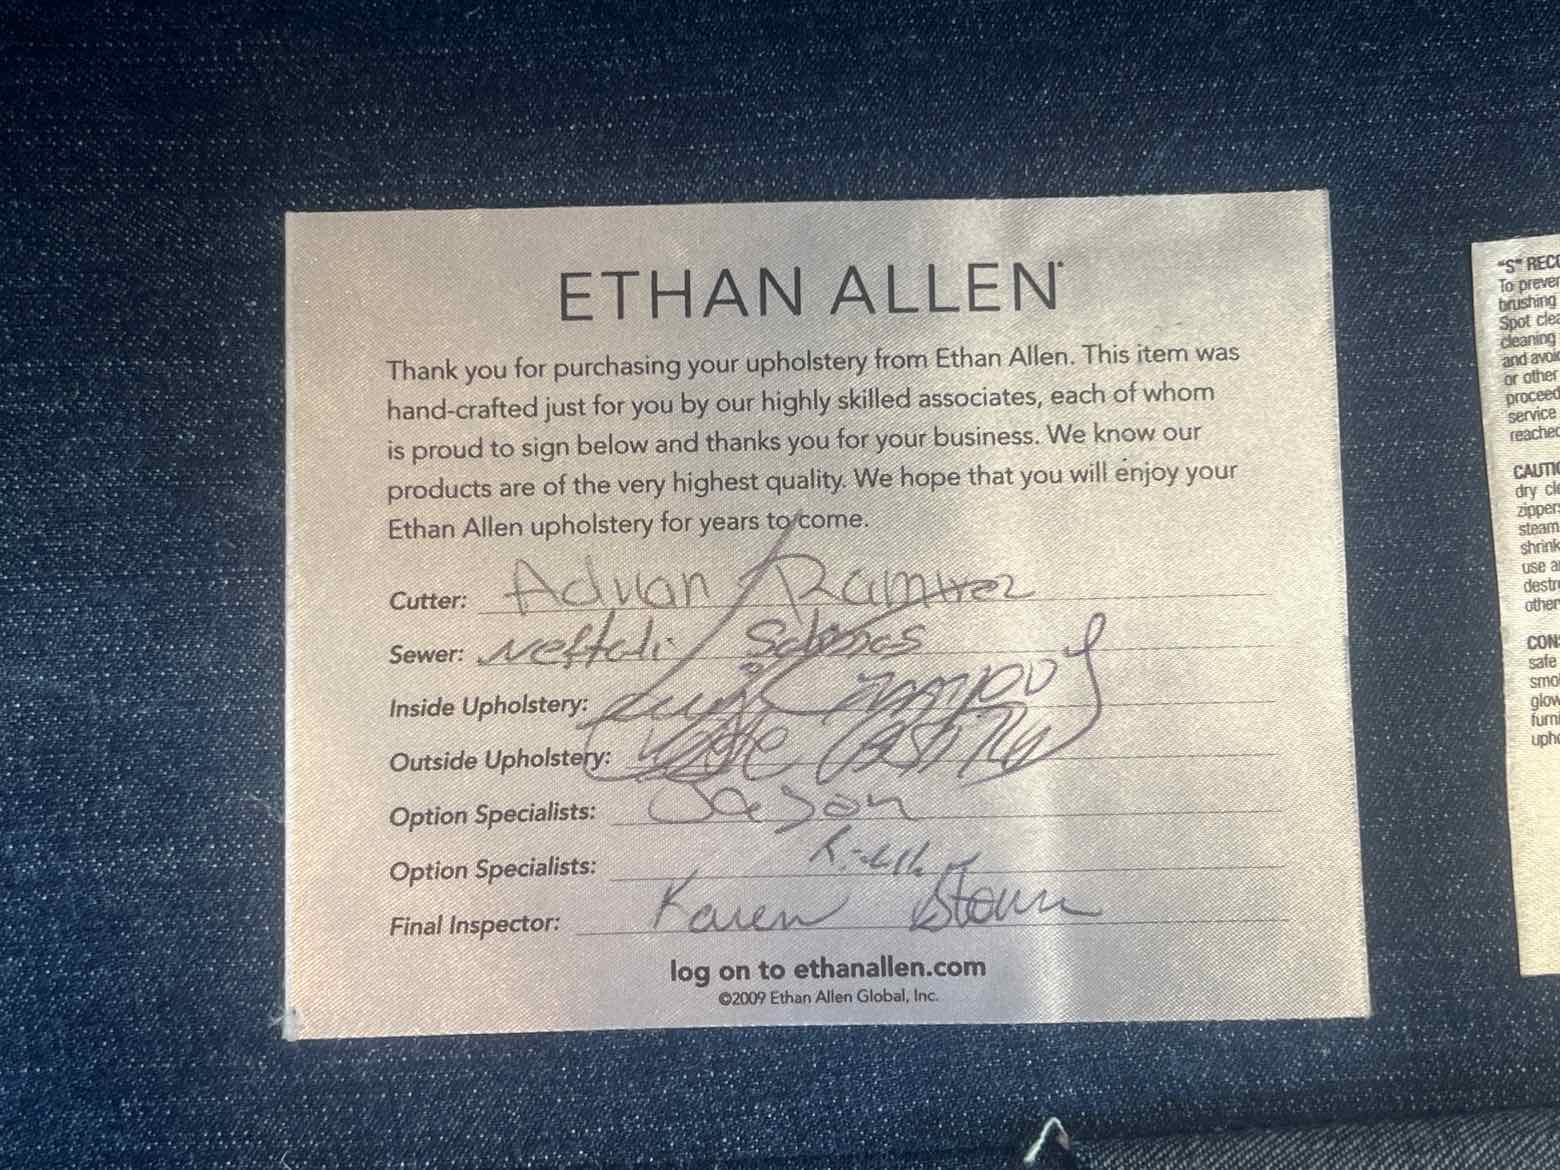 ETHAN ALLEN
Thank you for purchasing your upholstery from Ethan Allen. This item was
hand-crafted just for you by our highly skilled associates, each of whom
is proud to sign below and thanks you for your business. We know our
products are of the very highest quality. We hope that you will enjoy your
Ethan Allen upholstery for years to come.
Cutter: Adrian Ramirez
Sewer: Neftali
Inside Upholstery: Luis Campos
Outside Upholstery:
Option Specialists: Jason
Option Specialists:
Final Inspector: Karen
log on to ethanallen.com
©2009 Ethan Allen Global, Inc.
"S" RECO
To preven
brushing
Spot clea
cleaning
and avoid
or other
proceed
service
reached
CAUTIO
dry cle
zippers
steam
shrink
use a
destr
other
CON
safe
smo
glow
furni
upho